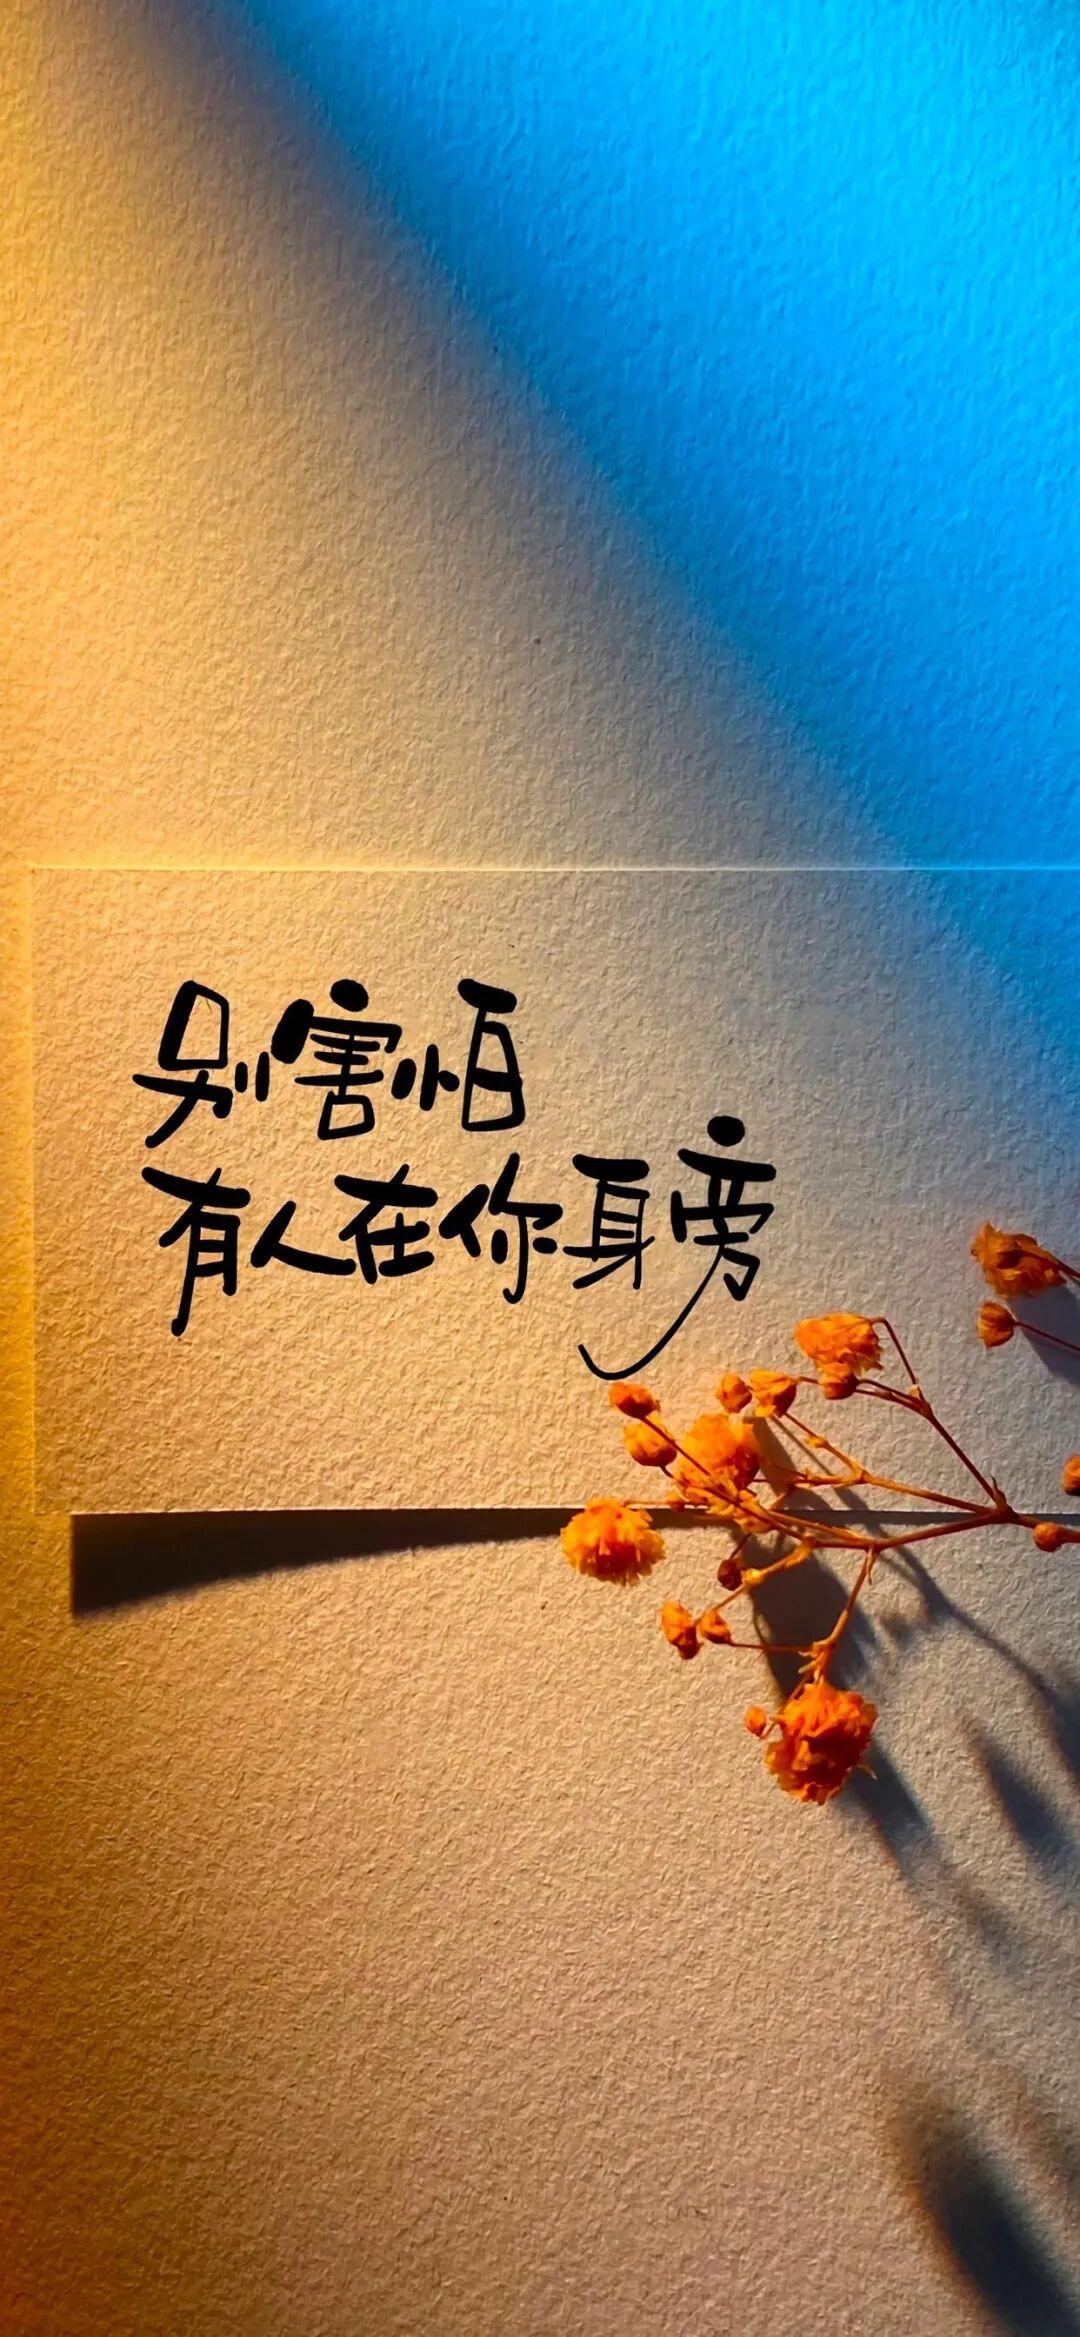 别害怕
有人在你身旁